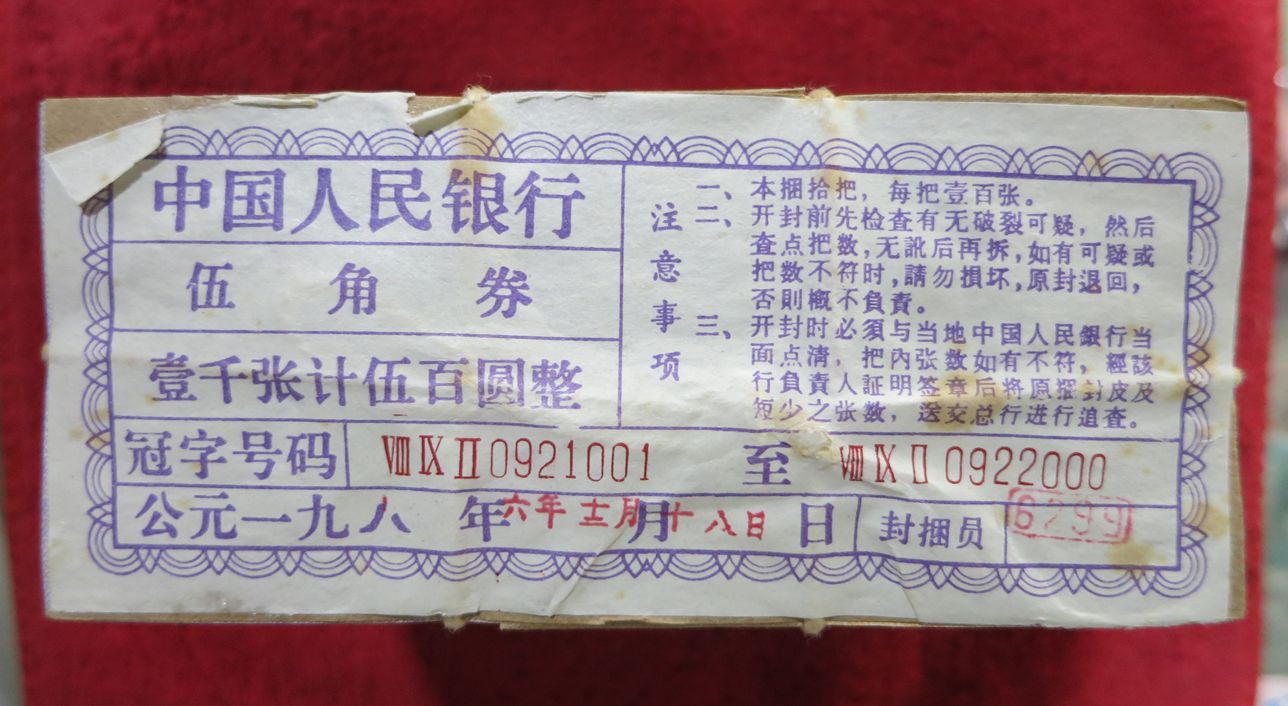 中国人民银行
伍角券
壹千张计伍百圆整
注意事项
一、本捆拾把，每把壹百张。
二、开封前先检查有无破裂可疑，然后
查点把数，无訛后再拆，如有可疑或
把数不符时，請勿損坏，原封退回，
否則概不負責。
三、开封时必須与当地中国人民銀行当
面点清，把内张数如有不符，經該
行負責人証明签章后将原捆封皮及
短少之张数，送交总行进行追查。
冠字号码 ⅧⅨⅡ0921001 至 ⅧⅨⅡ0922000
公元一九八 年六年十二月月十八日 日 封捆员 6299